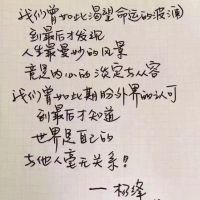 我们曾如此渴望命运的波澜
到最后才发现
人生最曼妙的风景
竟是内心的淡定与从容
我们曾如此期盼外界的认可
到最后才知道
世界是自己的
与他人毫无关系!
——杨绛